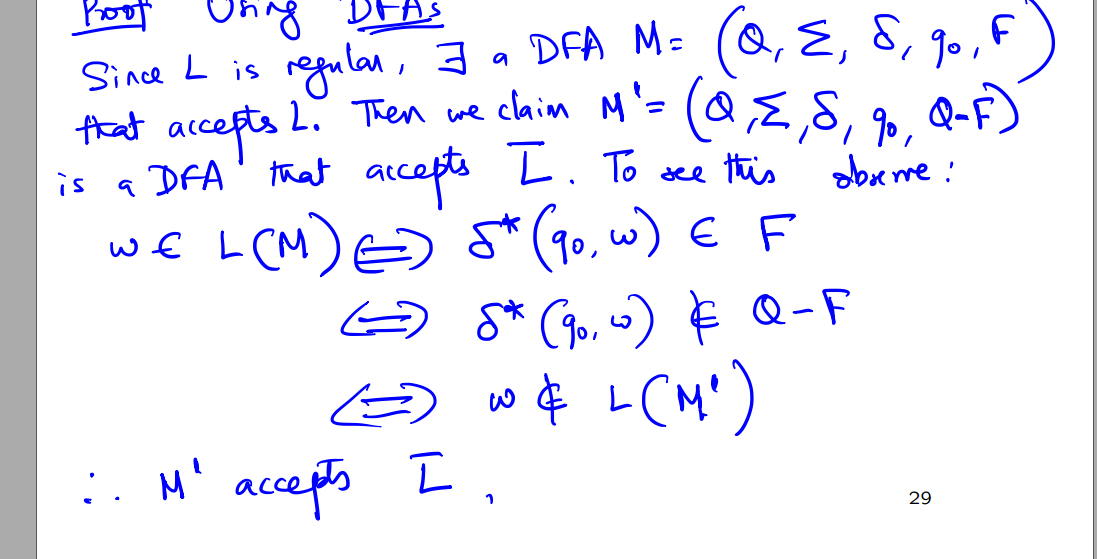 Proof Using DFAs
Since L is regular, ∃ a DFA M = (Q, Σ, δ, q₀, F)
that accepts L. Then we claim M' = (Q, Σ, δ, q₀, Q-F)
is a DFA that accepts L̅. To see this observe:
w ∈ L(M) ⟺ δ*(q₀, w) ∈ F
⟺ δ*(q₀, w) ∉ Q-F
⟺ w ∉ L(M')
∴ M' accepts L̅.
29